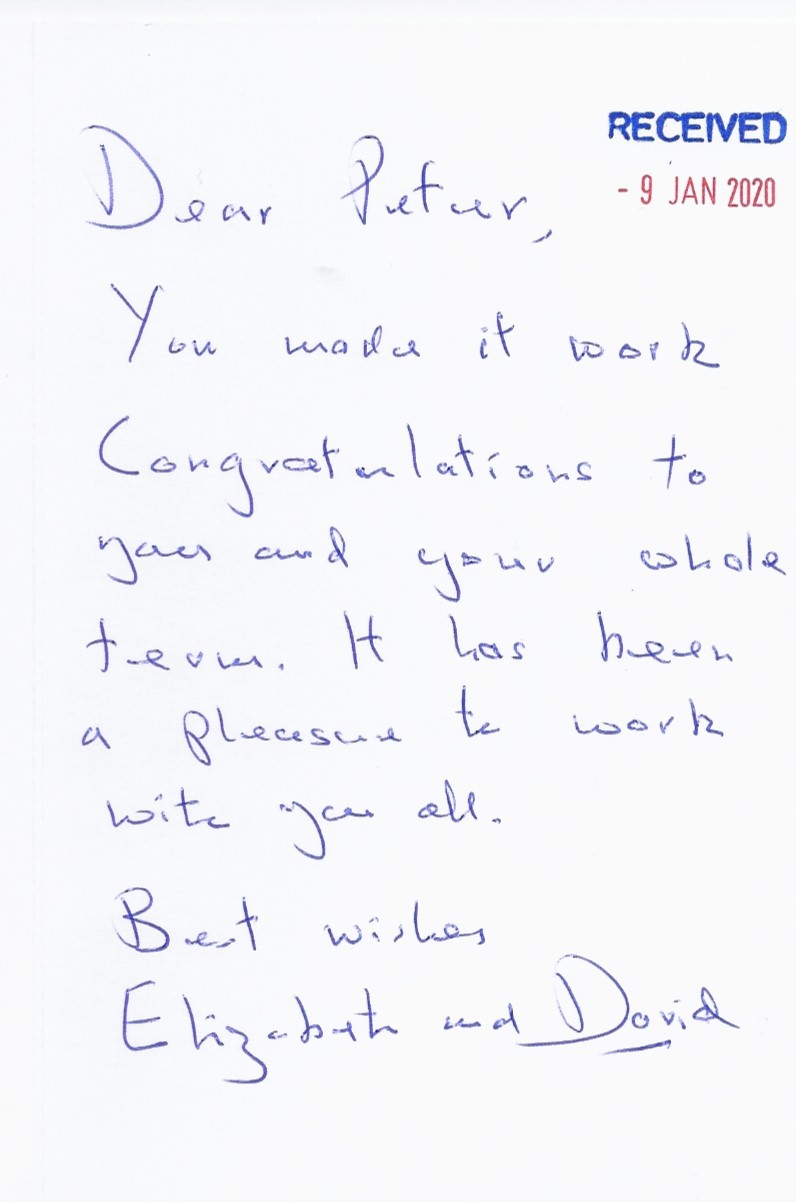 RECEIVED
- 9 JAN 2020
Dear Peter,
You made it work
Congratulations to
you and your whole
team. It has been
a pleasure to work
with you all.
Best wishes
Elizabeth and David